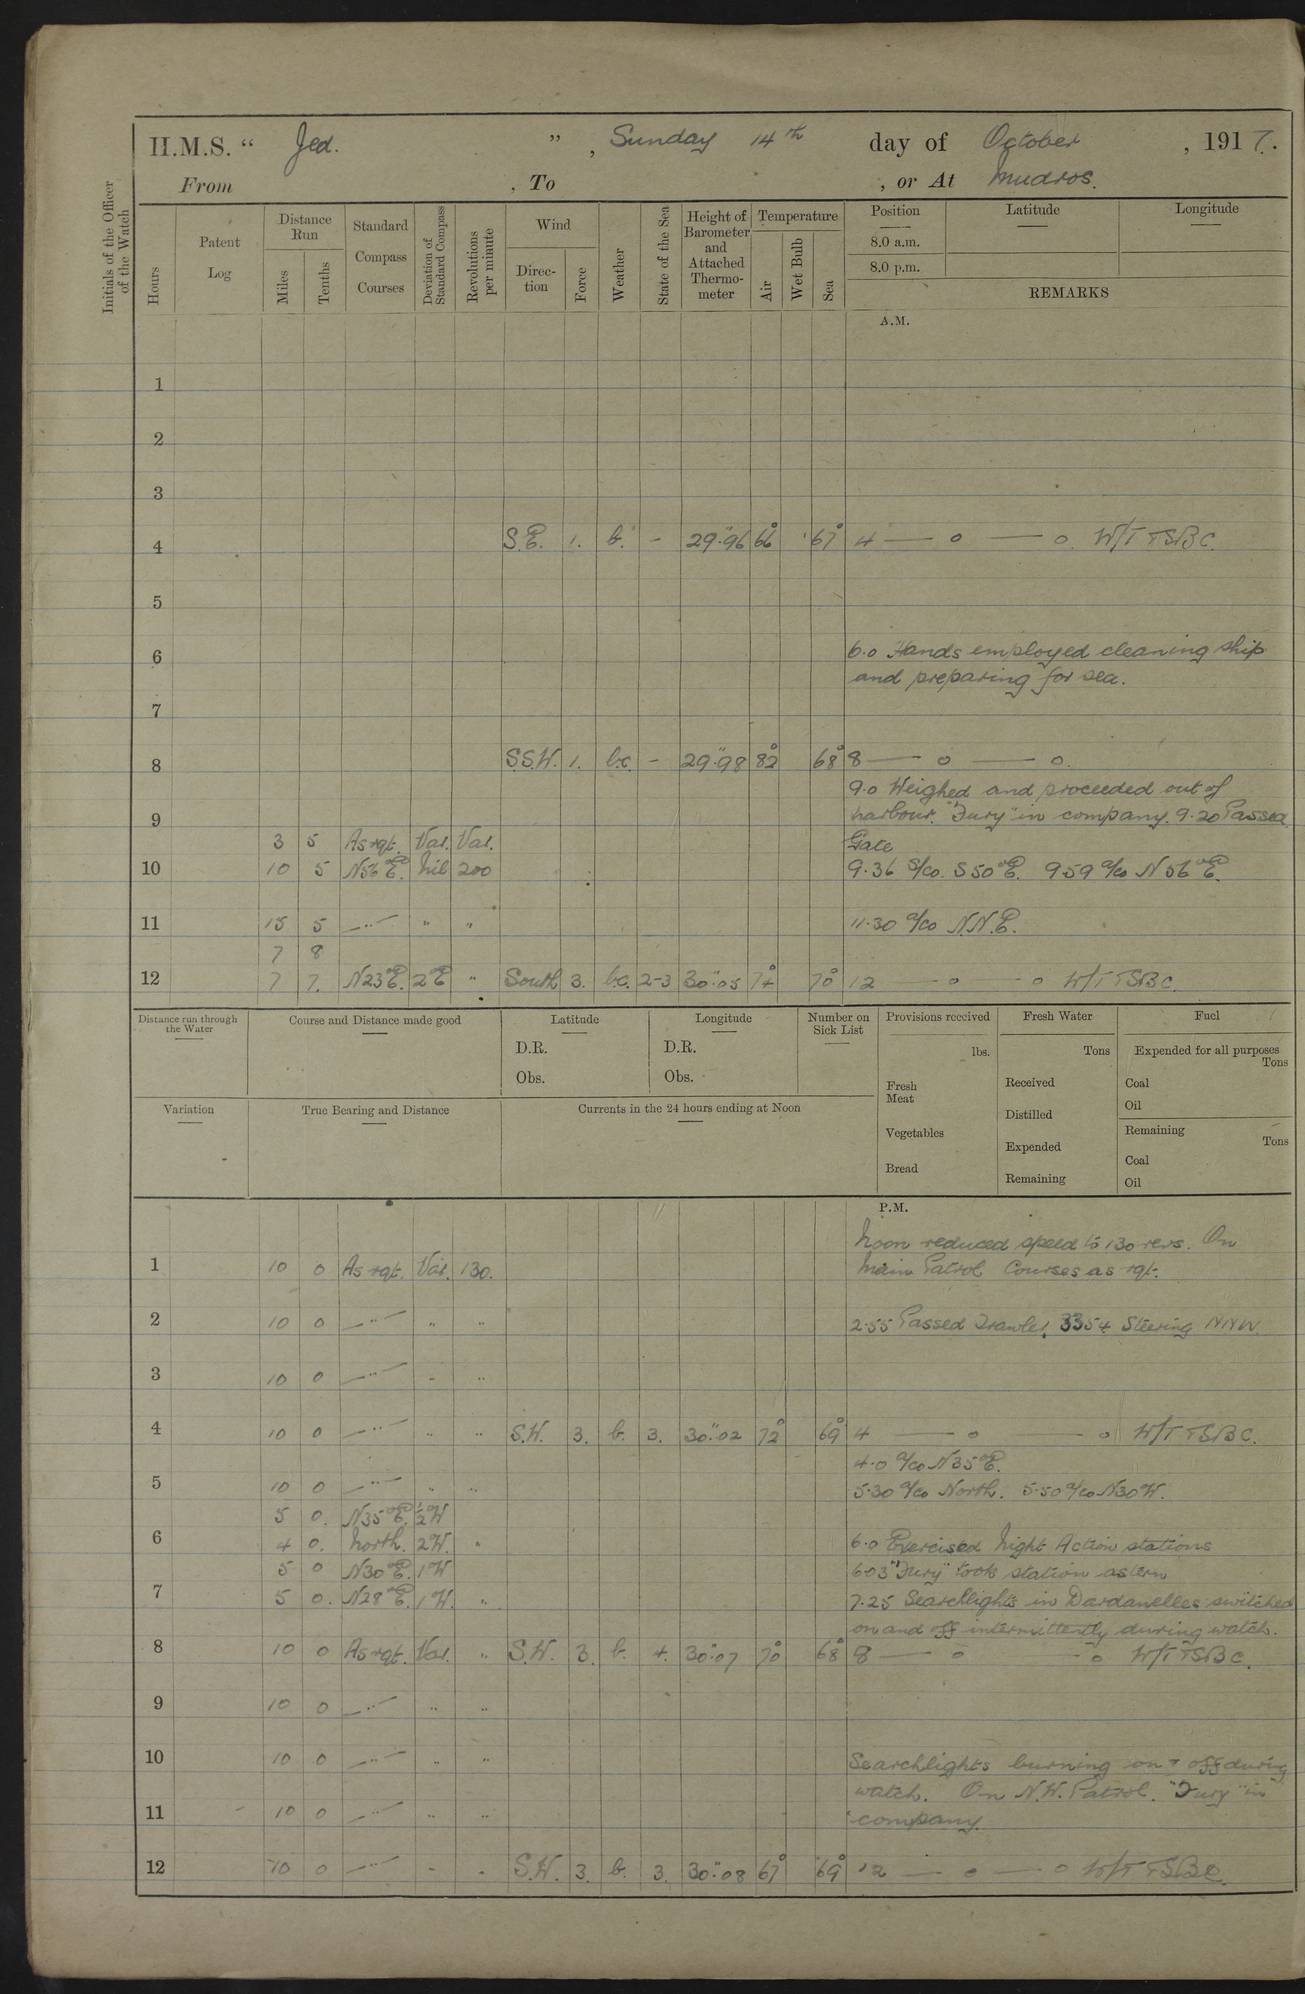 H.M.S. “ Jed. ” , Sunday 14th day of October , 1917.
From , To , or At Mudros.
Initials of the Officer of the Watch
Hours
Patent Log
Distance Run
Miles
Tenths
Standard Compass Courses
Deviation of Standard Compass
Revolutions per minute
Wind
Direc- tion
Force
Weather
State of the Sea
Height of Barometer and Attached Thermo- meter
Temperature
Air
Wet Bulb
Sea
Position
8.0 a.m.
8.0 p.m.
Latitude
Longitude
REMARKS
A.M.
1
2
3
4 S.E. 1. b. - 29.96 66° 67° 4 — o — o. W/T TSBC.
5
6 6.0 Hands employed cleaning ship
and preparing for sea.
7
8 S.S.W. 1. b.c. - 29.98 82° 68° 8 — o — o.
9.0 Weighed and proceeded out of
9 harbour. "Fury" in company. 9.20 Passed
3 5 As rqt. Var. Var. Gate
10 10 5 N56°E. Nil 200 9.36 S/co. S50°E. 9.59 a/co N56°E.
11 15 5 —"— " " 11.30 a/co N.N.E.
7 8
12 7 7. N23°E. 2°E " South 3. b.c. 2-3 30.05 74° 70° 12 — o — o W/T TSBC.
Distance run through the Water
Course and Distance made good
Latitude
D.R.
Obs.
Longitude
D.R.
Obs.
Number on Sick List
Provisions received
lbs.
Fresh Meat
Vegetables
Bread
Fresh Water
Tons
Received
Distilled
Expended
Remaining
Fuel
Expended for all purposes
Tons
Coal
Oil
Remaining
Tons
Coal
Oil
Variation
True Bearing and Distance
Currents in the 24 hours ending at Noon
P.M.
Noon reduced speed to 130 revs. On
1 10 0 As rqt. Var. 130. Main Patrol Courses as rqt.
2 10 0 —"— " " 2.55 Passed Trawler 3354 Steering NNW.
3 10 0 —"— " "
4 10 0 —"— " " S.W. 3. b. 3. 30.02 72° 69° 4 — o — o W/T TSBC.
4.0 a/co N35°E.
5 10 0 —"— " " 5.30 a/co North. 5.50 a/co N30W.
5 0. N35°E. ½°W
6 4 0. North. 2W. " 6.0 Exercised Night Action stations
5 0 N30°E. 1°W 6.03 "Fury" took station astern
7 5 0. N28°E. 1W. " 7.25 Searchlights in Dardanelles switched
on and off intermittently during watch.
8 10 0 As rqt. Var. " S.W. 3. b. 4. 30.07 70° 68° 8 — o — o W/T TSBC.
9 10 0 —"— " "
10 10 0 —"— " " Searchlights burning on & off during
watch. On N.W. Patrol. "Fury" in
11 10 0 —"— " " company.
12 10 0 —"— " " S.W. 3. b. 3. 30.08 67° 69° 12 — o — o W/T TSBC.